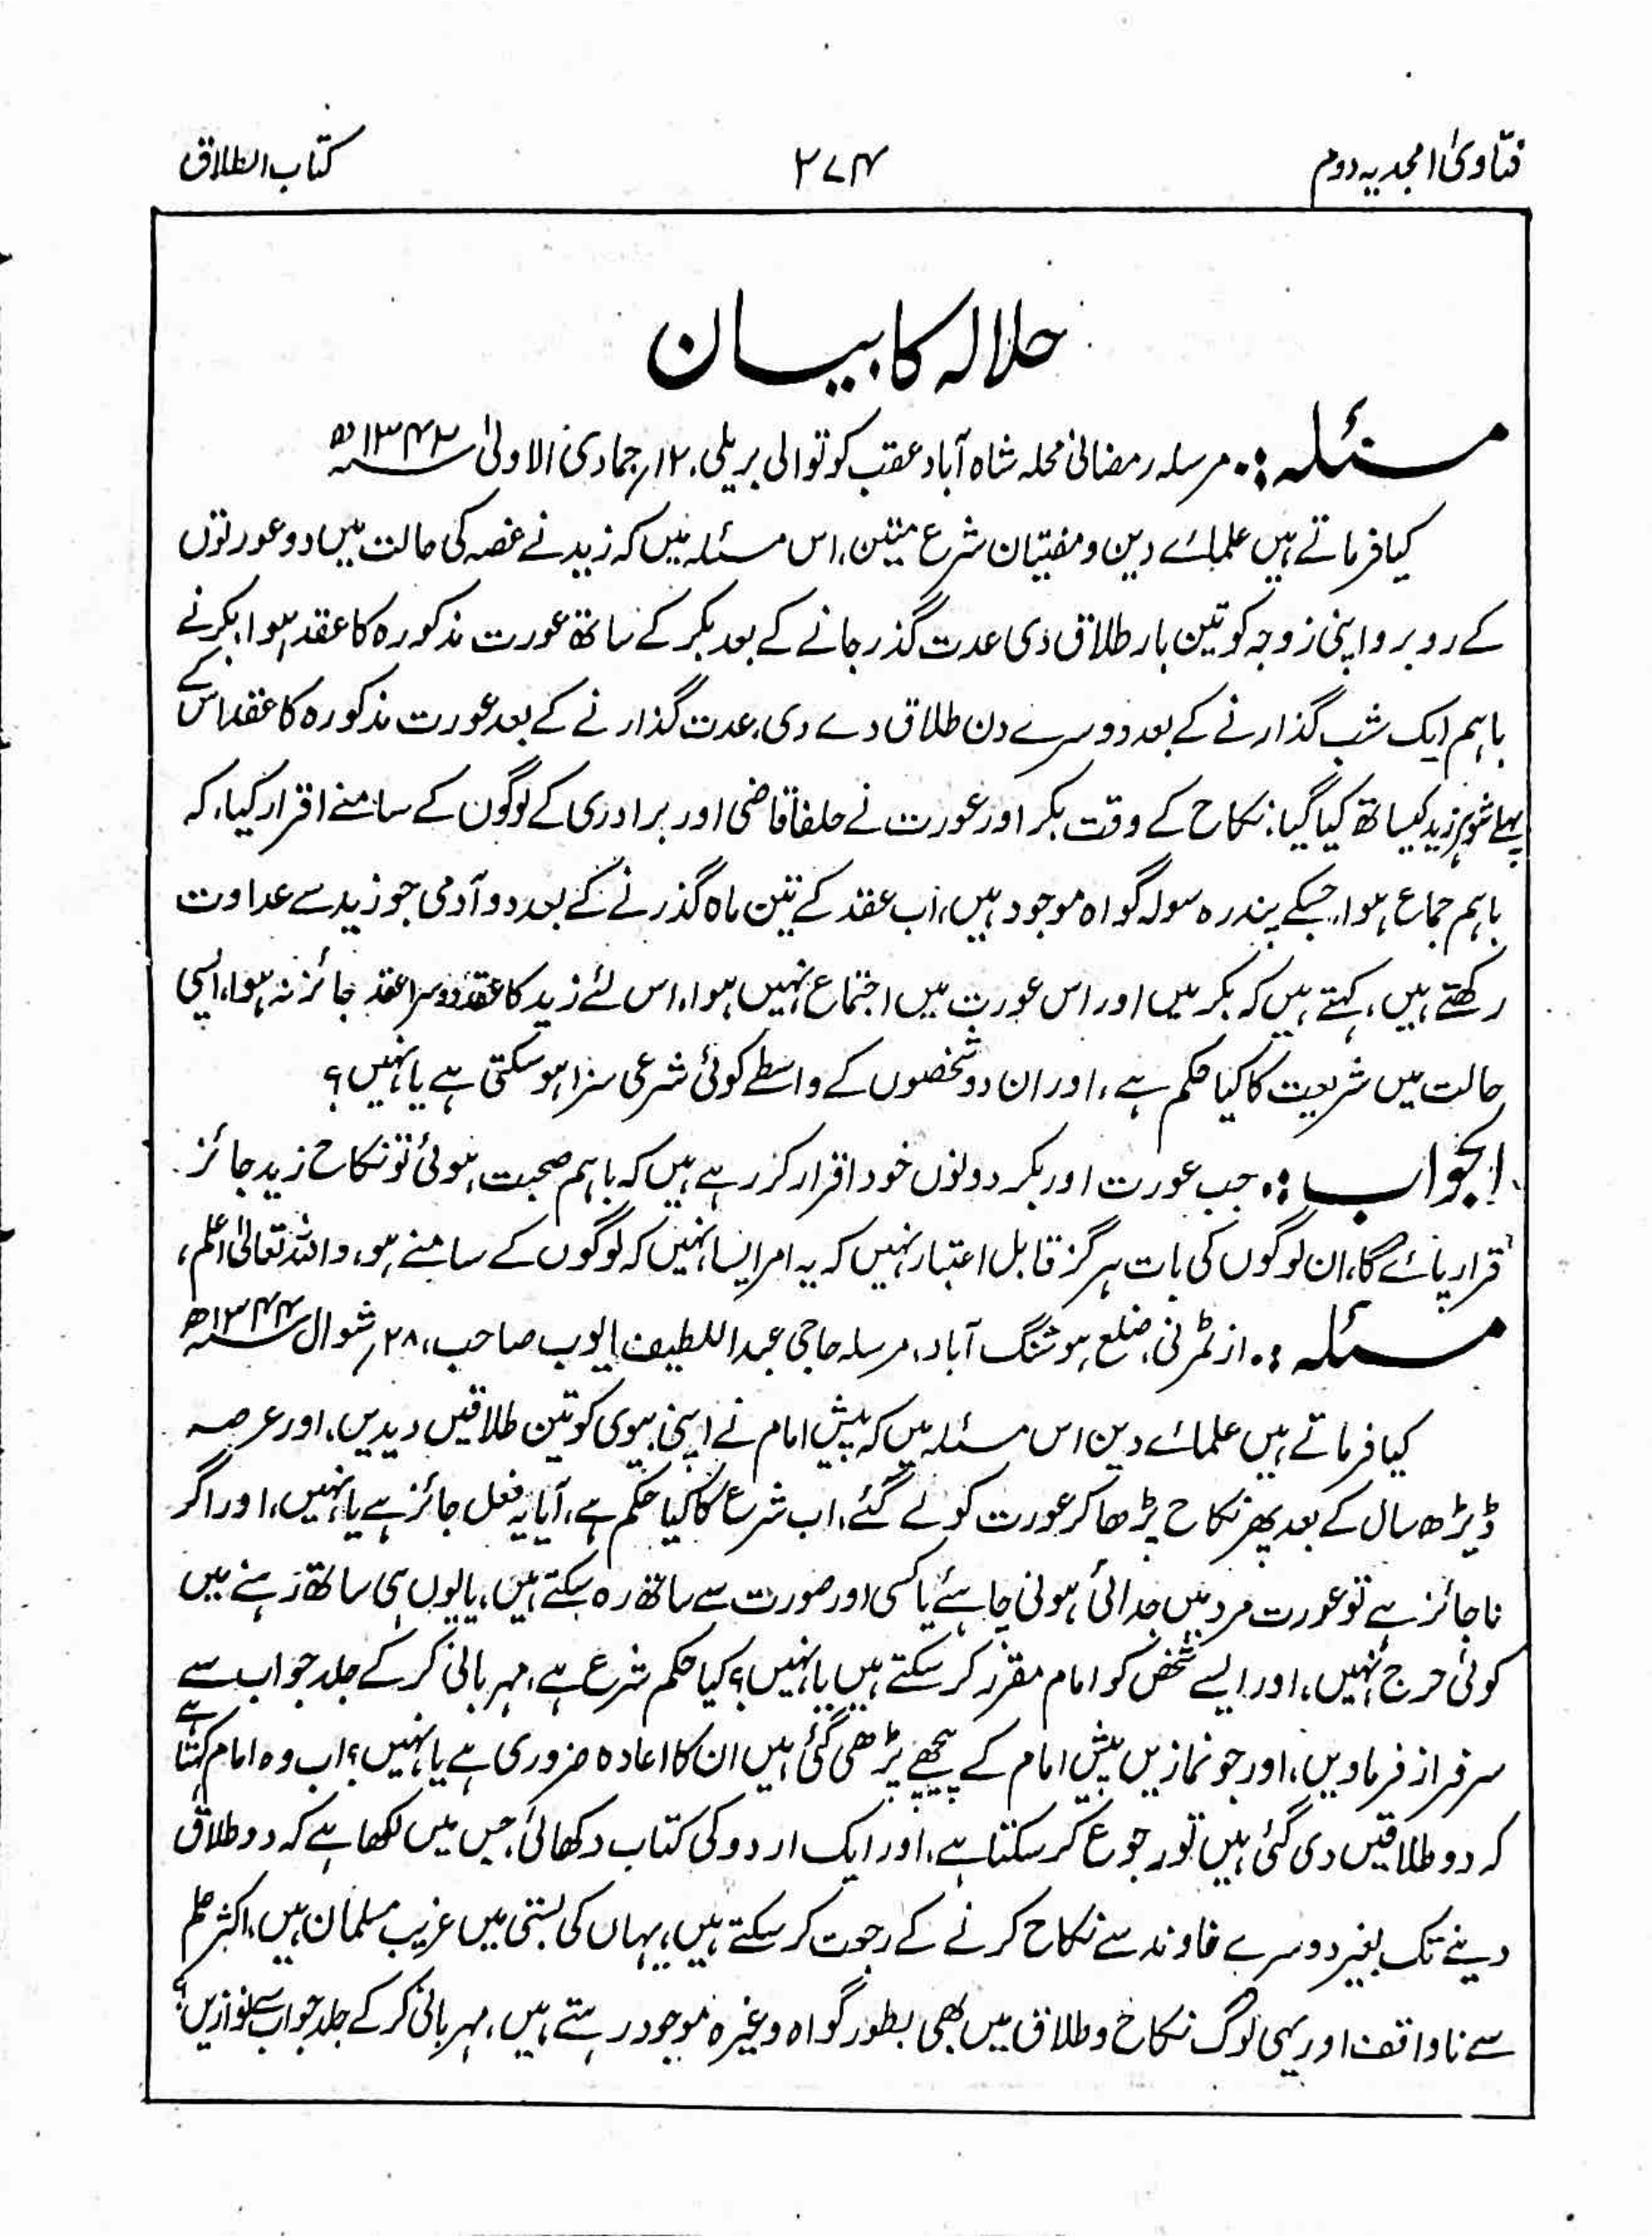 فتاویٰ امجدیہ دوم
۲۷۴
کتاب الطلاق
حلالہ کا بیان
مسئلہ :۔ مرسلہ رمضانی محلہ شاہ آباد عقب کوتوالی بریلی، ۱۲؍ جمادی الاولیٰ ۱۳۴۲ھ
کیا فرماتے ہیں علمائے دین و مفتیان شرع متین، اس مسئلہ میں کہ زید نے غصہ کی حالت میں دو عورتوں
کے روبرو اپنی زوجہ کو تین بار طلاق دی عدت گذر جانے کے بعد بکر کے ساتھ عورت مذکورہ کا عقد ہوا، بکر نے
باہم ایک شب گذارنے کے بعد دوسرے دن طلاق دے دی، عدت گذارنے کے بعد عورت مذکورہ کا عقد اس کے
پہلے شوہر زید کیساتھ کیا گیا، نکاح کے وقت بکر اور عورت نے حلفا قاضی اور برادری کے لوگوں کے سامنے اقرار کیا، کہ
باہم جماع ہوا، جسکے پندرہ سولہ گواہ موجود ہیں، اب عقد کے تین ماہ گذرنے کے بعد دو آدمی جو زید سے عداوت
رکھتے ہیں، کہتے ہیں کہ بکر میں اور اس عورت میں اجتماع نہیں ہوا، اس لئے زید کا عقد دوسرا عقد جائز نہ ہوا، ایسی
حالت میں شریعت کا کیا حکم ہے، اور ان دو شخصوں کے واسطے کوئی شرعی سزا ہو سکتی ہے یا نہیں ؟
الجواب :۔ جب عورت اور بکر دونوں خود اقرار کر رہے ہیں کہ باہم صحبت ہوئی تو نکاح زید جائز
قرار پائے گا، ان لوگوں کی بات ہرگز قابل اعتبار نہیں کہ یہ امر ایسا نہیں کہ لوگوں کے سامنے ہو، واللہ تعالیٰ اعلم،
مسئلہ :۔ از ٹمرنی، ضلع ہوشنگ آباد، مرسلہ حاجی عبد اللطیف ایوب صاحب، ۲۸؍ شوال ۱۳۴۴ھ
کیا فرماتے ہیں علمائے دین اس مسئلہ میں کہ پیش امام نے اپنی بیوی کو تین طلاقیں دیدیں، اور عرصہ
ڈیڑھ سال کے بعد پھر نکاح پڑھا کر عورت کو لے گئے، اب شرع کا کیا حکم ہے، آیا یہ فعل جائز ہے یا نہیں، اور اگر
ناجائز ہے تو عورت مرد میں جدائی ہونی چاہئے یا کسی اور صورت سے ساتھ رہ سکتے ہیں، یا یوں ہی ساتھ رہنے میں
کوئی حرج نہیں، اور ایسے شخص کو امام مقرر کر سکتے ہیں یا نہیں؟ کیا حکم شرع ہے، مہربانی کر کے جلد جواب سے
سرفراز فرماویں، اور جو نمازیں پیش امام کے پیچھے پڑھی گئی ہیں ان کا اعادہ ضروری ہے یا نہیں؟ اب وہ امام کہتا ہے
کہ دو طلاقیں دی گئی ہیں تو رجوع کر سکتا ہے، اور ایک اردو کی کتاب دکھائی، جس میں لکھا ہے کہ دو طلاق
دینے تک بغیر دوسرے خاوند سے نکاح کرنے کے رجعت کر سکتے ہیں، یہاں کی بستی میں غریب مسلمان ہیں، اکثر علم
سے ناواقف اور یہی لوگ نکاح و طلاق میں بھی بطور گواہ وغیرہ موجود رہتے ہیں، مہربانی کر کے جلد جواب سے نوازیں؟